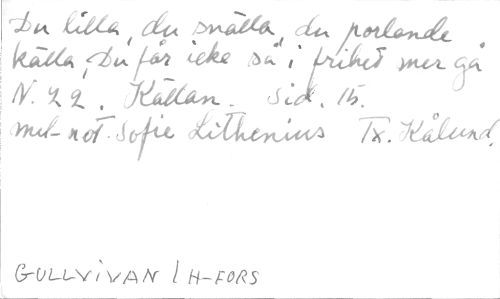 Du lilla, du snälla, du porlande
källa, Du får icke så i frihet mer gå
N. 22. Källan. Sid. 15.
mel-not. Sofie Lithenius Tx. Kålund.
GULLVIVAN / H-FORS